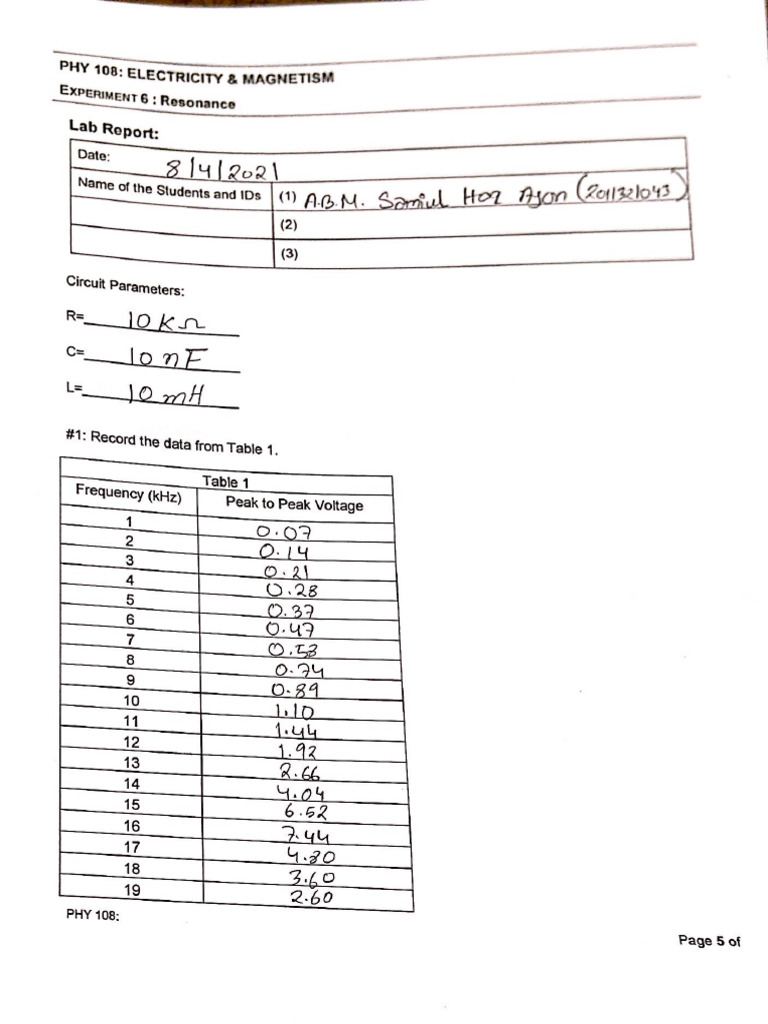 PHY 108: ELECTRICITY & MAGNETISM
EXPERIMENT 6 : Resonance
Lab Report:
Date: 8/4/2021
Name of the Students and IDs (1) A.B.M. Samiul Hoq Ajon (2011321043)
(2)
(3)
Circuit Parameters:
R= 10KΩ
C= 10nF
L= 10mH
#1: Record the data from Table 1.
Table 1
Frequency (kHz) Peak to Peak Voltage
1 0.07
2 0.14
3 0.21
4 0.28
5 0.37
6 0.47
7 0.53
8 0.74
9 0.89
10 1.10
11 1.44
12 1.92
13 2.66
14 4.04
15 6.52
16 7.44
17 4.80
18 3.60
19 2.60
PHY 108:
Page 5 of